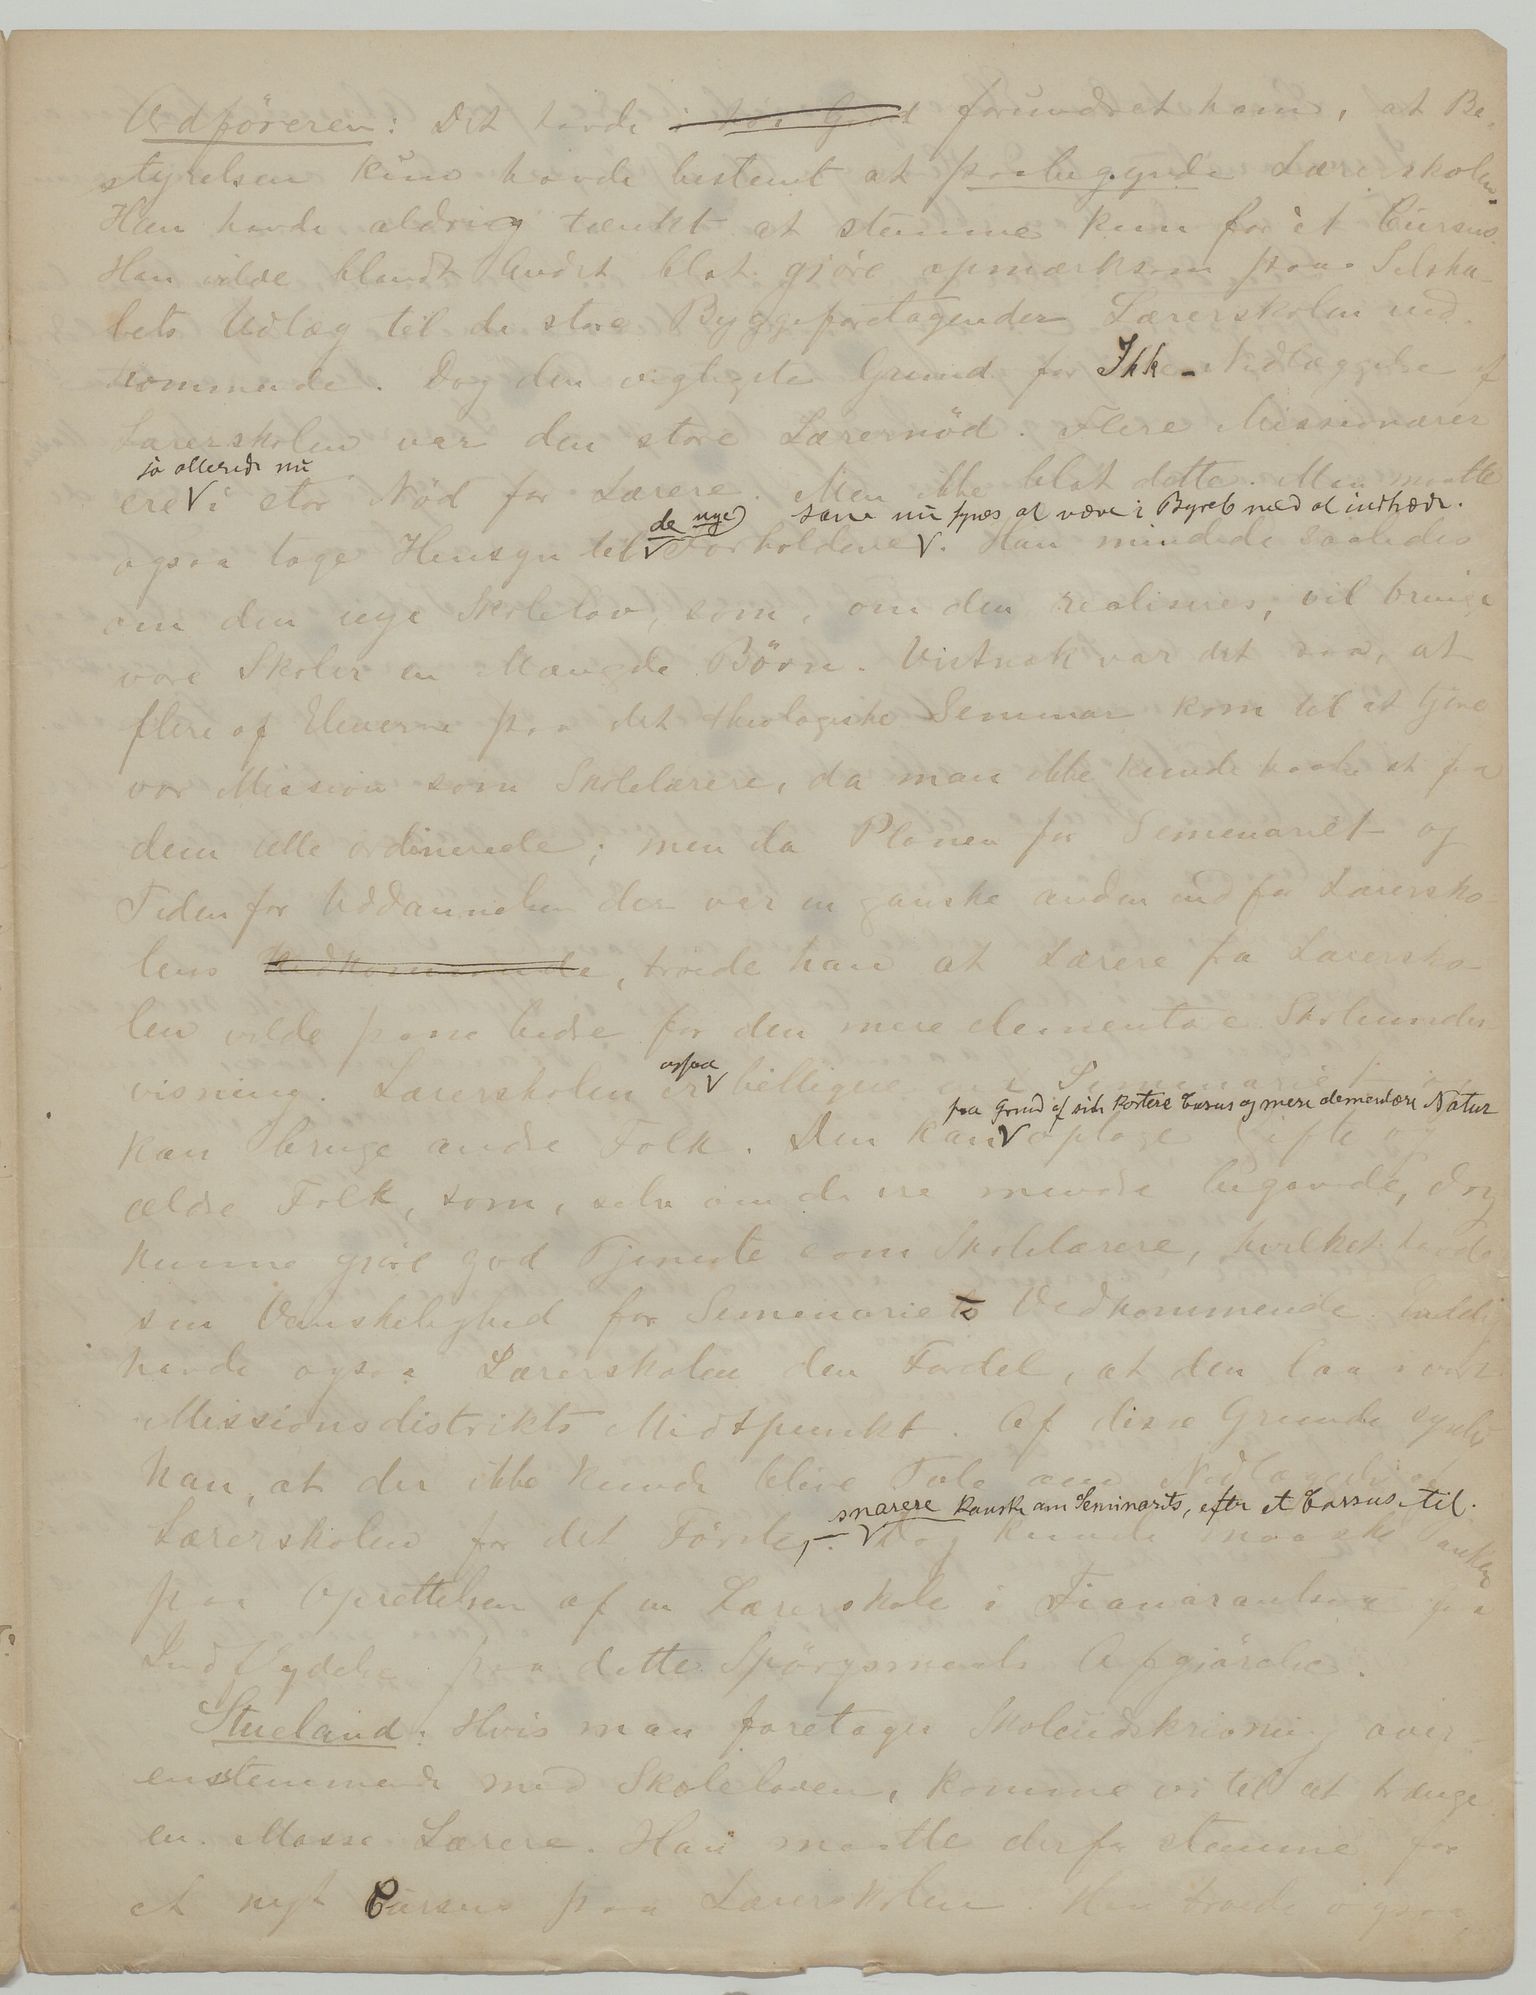 Ordføreren: Det havde i høi Grad forundret ham, at Be-
styrelsen kun havde bestemt at paabegynde Lærerskolen.
Han havde aldrig tænkt at stemme kun for èt Cursus.
Han vilde blandt Andet blot gjøre opmærksom paa Selska-
bets Udlæg til de store Byggeforetagender Lærerskolen ved-
kommende. Dog den vigtigste Grund for Ikke-Nedlæggelse af
Lærerskolen var den store Lærernød. Flere Missionærer
jo allerede nu
ere i stor Nød for Lærere. Men ikke blot dette. Man maatte
de nye som nu synes at være i Byreb med at indtræde.
ogsaa tage Hensyn til Forholdene. Han mindede saaledes
om den nye Skolelov, som, om den realiseres, vil bringe
vore Skoler en Mængde Børn. Vistnok var det saa, at
flere af Eleverne paa det theologiske Seminar kom til at tjene
vor Mission som Skolelærere, da man ikke kunde haabe at faa
dem alle ordinerede; men da Planen for Semenariet og
Tiden for Uddannelsen der var en ganske anden end for Lærersko-
lens Vedkommende, troede han at Lærere fra Lærersko-
len vilde passe bedre for den mere elementære Skoleunder-
visning. Lærerskolen er billigere end Semenariet og
ogsaa
paa Grund af sit kortere Cursus og mere elementære Natur
kan bruge andre Folk. Den kan optage gifte og
ældre Folk, som, selv om de ere mindre begavede, dog
kunne gjøre god Tjeneste som Skolelærere, hvilket havde
sin Vanskelighed for Semenariets Vedkommende. Endelig
havde ogsaa Lærerskolen den Fordel, at den laa i vort
Missionsdistrikts Midtpunkt. Af disse Grunde syntes
han, at der ikke kunde blive Tale om Nedlæggelse af
snarere kanske om Seminarets, efter et Cursus til.
Lærerskolen for det Første, -. Dog kunde maaske Tanken
paa Oprettelsen af en Lærerskole i Fianarantsoa faa
Indflydelse paa dette Spørgsmaals Afgjørelse.
Stueland: Hvis man foretager Skoleindskrivning over-
ensstemmende med Skoleloven, komme vi til at trænge
en Masse Lærere. Han maatte derfor stemme for
et nyt Cursus paa Lærerskolen. Han troede ogsaa,